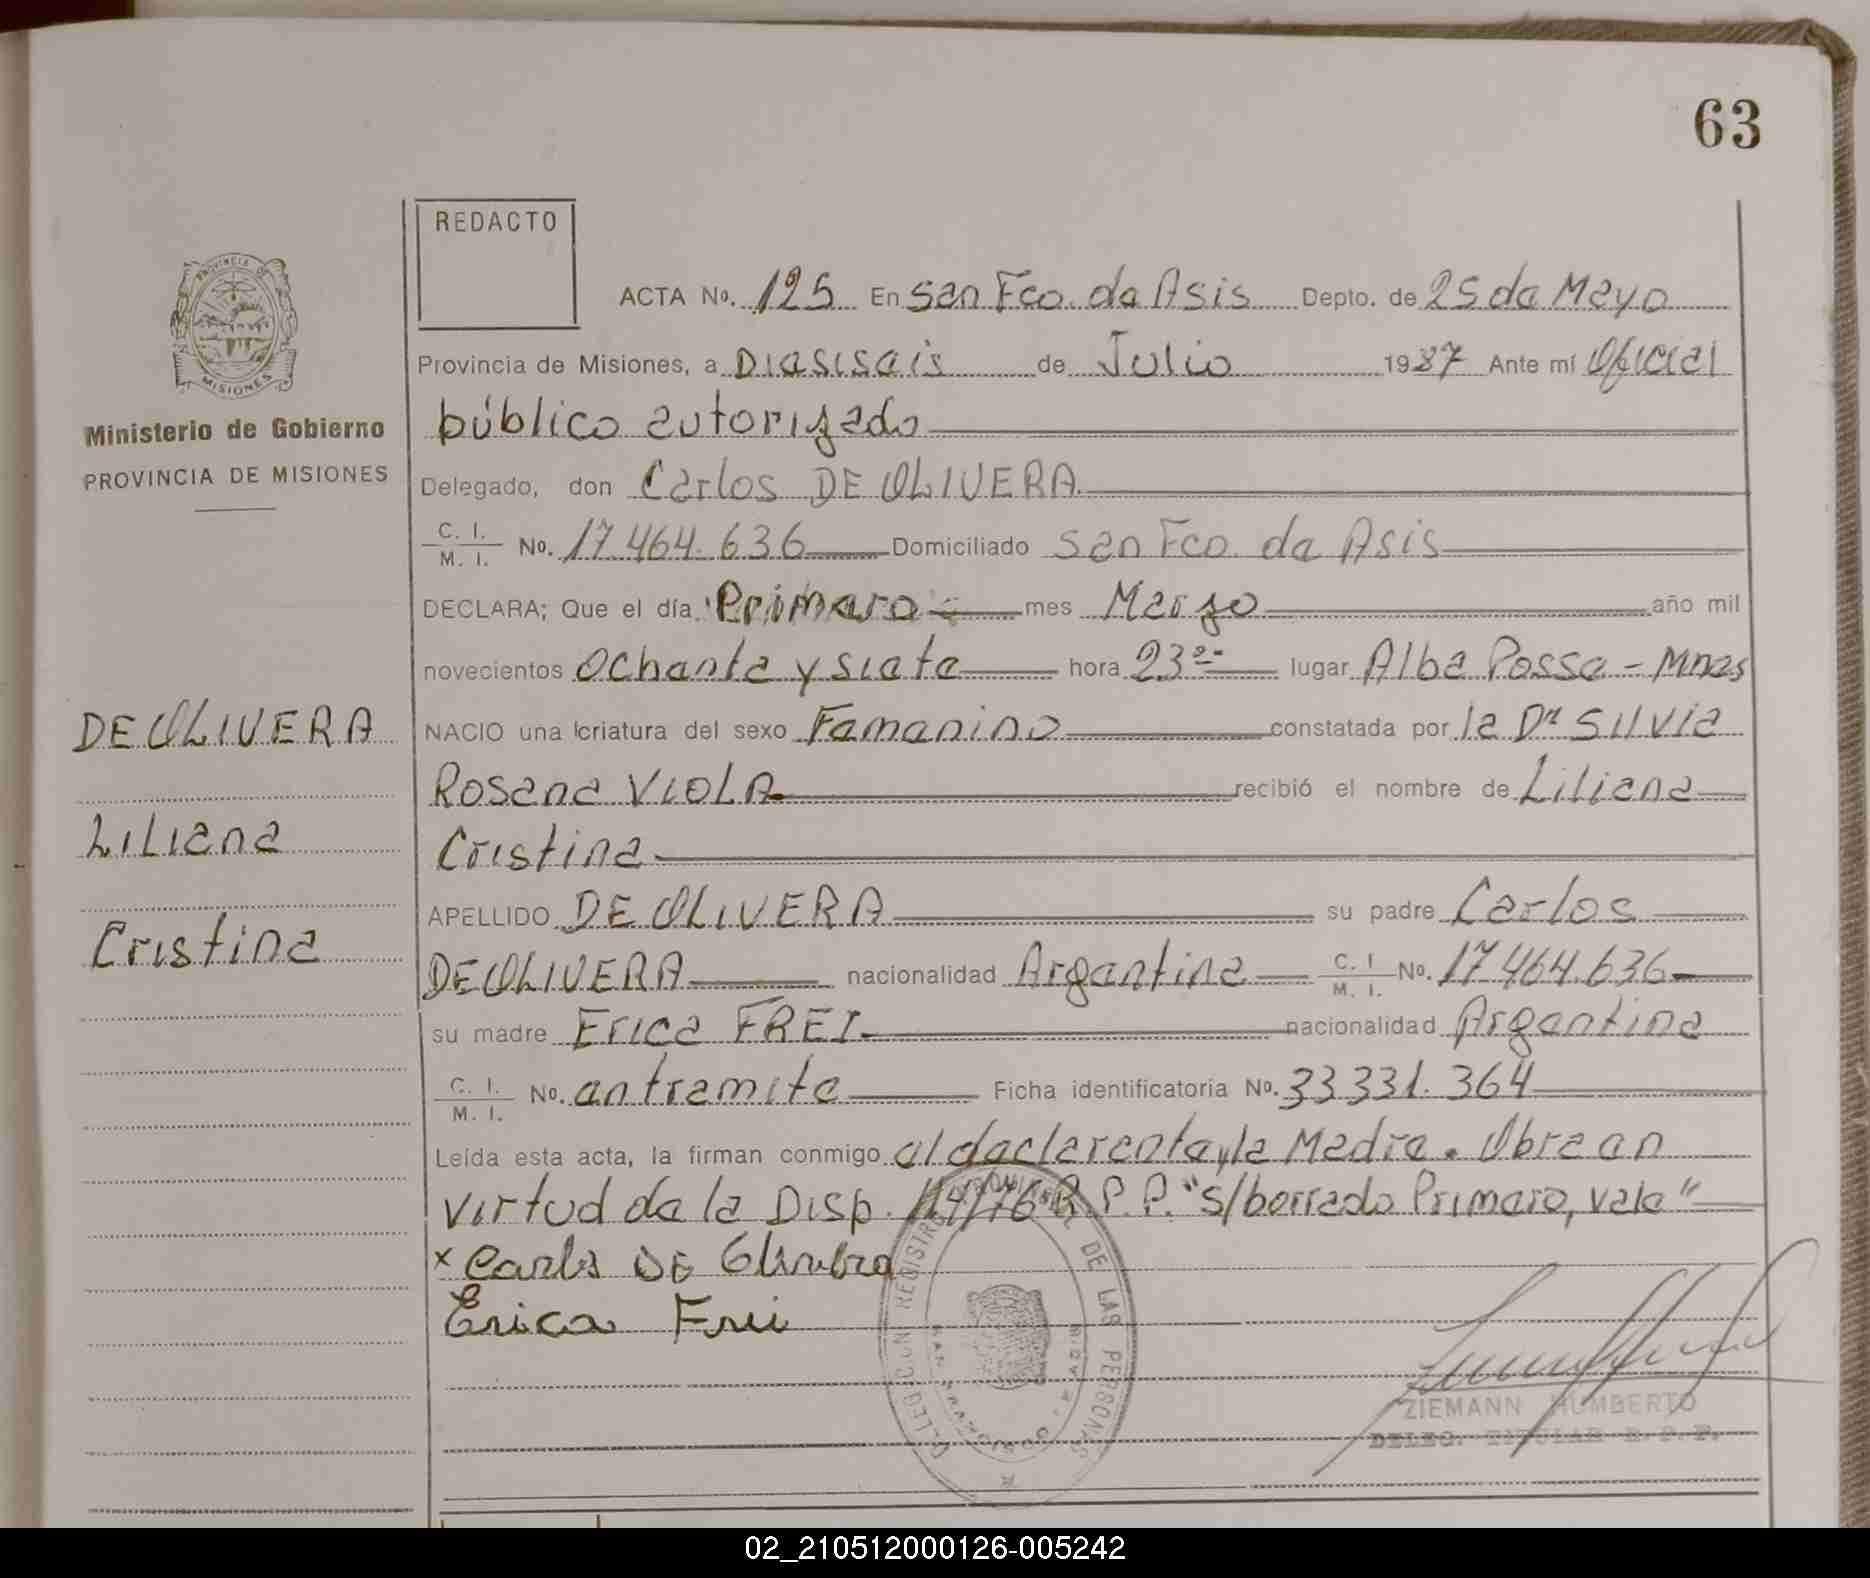 63
REDACTO
ACTA No. 125 En San Fco. de Asis Depto. de 25 de Mayo
Provincia de Misiones, a Diesiseis de Julio 1987 Ante mí Oficial
público autorizado
Delegado, don Carlos DE OLIVERA
C. I. M. I. No. 17.464.636 Domiciliado San Fco. de Asis
DECLARA; Que el día Primero mes Marzo año mil
novecientos Ochenta y siete hora 23ºº lugar Alba Posse - Mnes
NACIO una criatura del sexo Femenino constatada por la Dra Silvia
Rosana VIOLA recibió el nombre de Liliana
Cristina
APELLIDO DE OLIVERA su padre Carlos
DE OLIVERA nacionalidad Argentina C. I. M. I. No. 17.464.636
su madre Erica FREI nacionalidad Argentina
C. I. M. I. No. en tramite Ficha identificatoria No. 33331.364
Leída esta acta, la firman conmigo el declarente y la Madre. Obra en
virtud de la Disp. 114/76 R.P.P. "s/borrado Primero, vale"
x Carlos DE Olivera
Erica Frei
PROVINCIA DE MISIONES
Ministerio de Gobierno
PROVINCIA DE MISIONES
DE OLIVERA
Liliana
Cristina
REGISTRO PROVINCIAL DE LAS PERSONAS
ZIEMANN HUMBERTO
DELEG. TITULAR R. P. P.
02_210512000126-005242